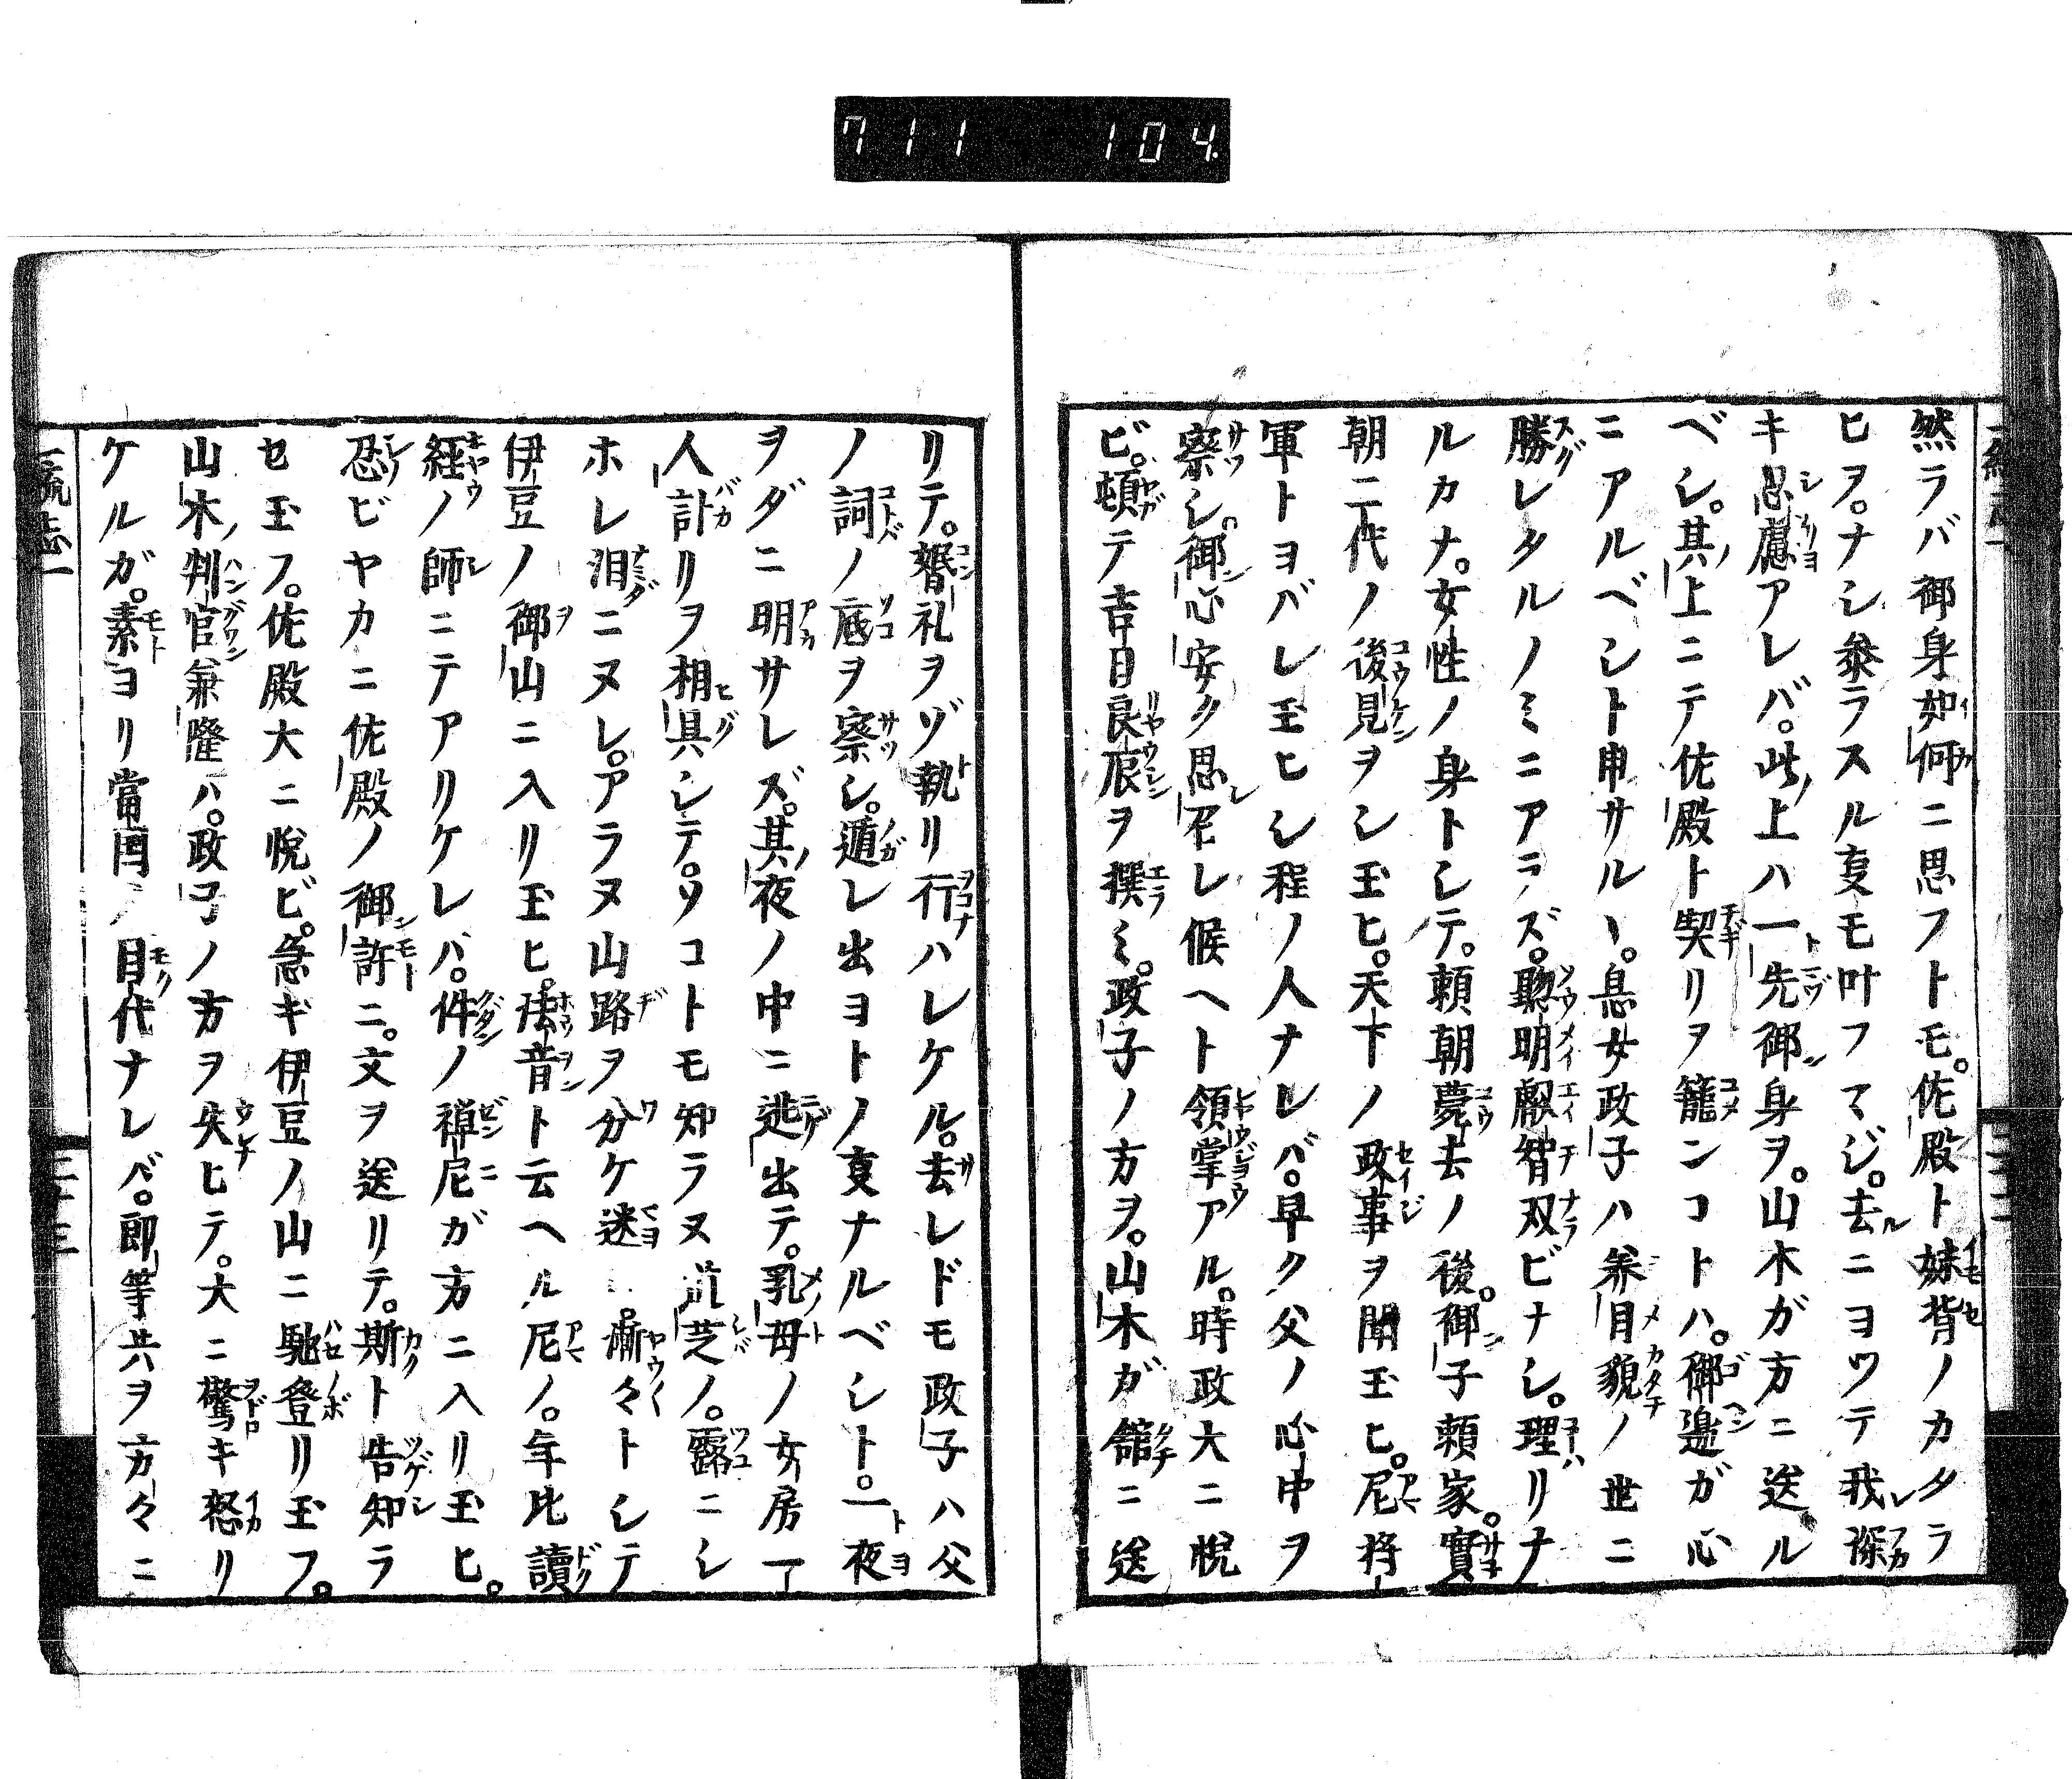 711 104
然ラバ御身如何ニ思フトモ。佐殿ト妹背ノカタラ
ヒヲ。ナシ参ラスル事モ叶フマジ。去ニヨツテ我深
キ思慮アレバ。此上ハ一先御身ヲ。山木ガ方ニ送ル
ベシ。其上ニテ佐殿ト契リヲ籠ンコトハ。御邊ガ心
ニアルベシト申サル丶。息女政子ハ美目貌ノ世ニ
勝レタルノミニアラズ。聰明叡智双ビナシ。理リナ
ルカナ。女性ノ身トシテ。頼朝薨去ノ後。御子頼家。實
朝二代ノ後見ヲシ玉ヒ。天下ノ政事ヲ聞玉ヒ。尼将
軍トヨバレ玉ヒシ程ノ人ナレバ。早ク父ノ心中ヲ
察シ。御心安ク思召レ候ヘト領掌アル。時政大ニ悦
ビ。頓テ吉日良辰ヲ撰ミ。政子ノ方ヲ。山木ガ舘ニ送
リテ。婚礼ヲゾ執リ行ハレケル。去レドモ政子ハ父
ノ詞ノ底ヲ察シ。遁レ出ヨトノ事ナルベシト。一夜
ヲダニ明サレズ。其夜ノ中ニ逃出テ。乳母ノ女房一
人計リヲ相具シテ。ソコトモ知ラヌ芝ノ。露ニシ
ホレ泪ニヌレ。アラヌ山路ヲ分ケ迷。漸々トシテ
伊豆ノ御山ニ入リ玉ヒ。法音ト云ヘル尼ノ。年比讀
経ノ師ニテアリケレバ。件ノ禅尼ガ方ニ入リ玉ヒ。
忍ビヤカニ佐殿ノ御許ニ。文ヲ送リテ。斯ト告知ラ
セ玉フ。佐殿大ニ悦ビ。急ギ伊豆ノ山ニ馳登リ玉フ。
山木判官兼隆ハ。政子ノ方ヲ失ヒテ。大ニ驚キ怒リ
ケルガ。素ヨリ當国ノ目代ナレバ。郎等共ヲ方々ニ
二十三